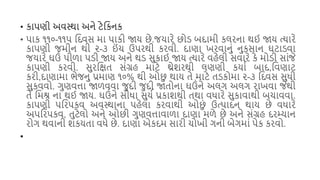 • કાપણી અવસ્થા અને ટેકિનક
• પાક ૧૧૦-૧૧૫ દિવસ મા પાકી જાય છે.જયારે છોડ બદામી કલરના થઇ જાય ત્યારે
કાપણી જમીન થી ૨-૩ ઇંચ ઉપરથી કરવી. દાણા ખરવાનું નુકસાન ઘટાડવા
જયારે ઘઉં પીળા પડી જાય અને થડ સુકાઈ જાય ત્યારે વહેલી સવારે કે મોડી સાંજે
કાપણી કરવી. સુરક્ષિત સંગ્રહ માટે થ્રેશરથી લણણી કર્યા બાદ,વિણાટ
કરી.દાણામા ભેજનું પ્રમાણ ૧૦% થી ઓછુ થાય તે માટે તડકોમા ૨-૩ દિવસ સુધી
સુકવવો. ગુણવત્તા જાળવવા જુદી જુદી જાતોના ઘઉંને અલગ અલગ રાખવા જેથી
તે મિશ્ર ના થઇ જાય. ઘઉંને સીધા સુર્ય પ્રકાશથી તથા વધારે સુકાવાથી બચાવવા.
કાપણી પરિપકૃવ અવસ્થાના પહેલા કરવાથી ઓછું ઉત્પાદન થાય છે વધારે
અપરિપકૃવ, તુટેલો અને ઓછી ગુણવત્તાવાળા દાણા મળે છે અને સંગ્રહ દરમ્યાન
રોગ થવાની શક્યતા વધે છે. દાણા એકદમ સારી ચોખી ગની બેગમાં પેક કરવો.
•